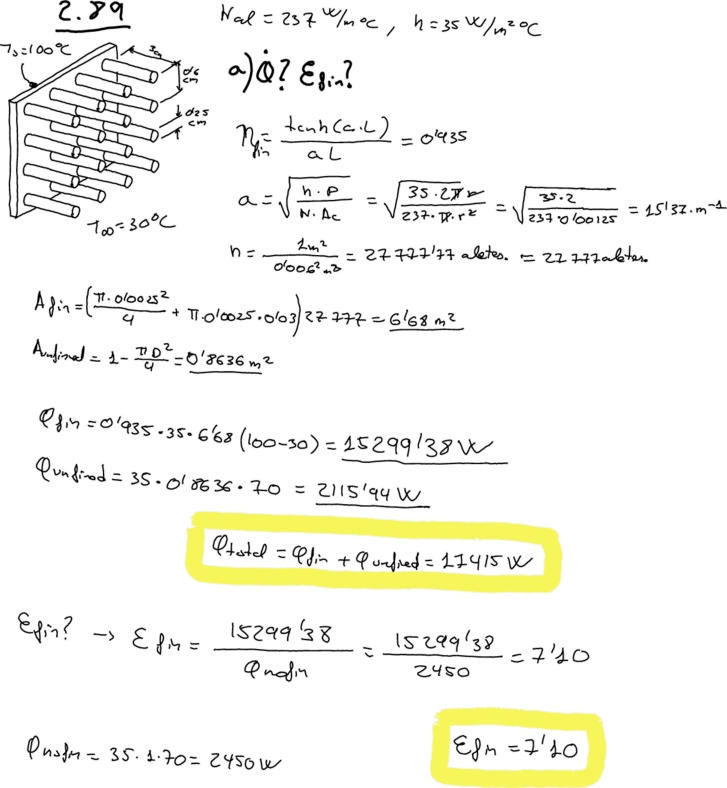 2.89
Kal = 237 W/m°C , h = 35 W/m²°C
Ts = 100°C
3 cm
0'6 cm
0'25 cm
T∞ = 30°C
a) Q̇? Efin?
ηfin = tanh(a·L) / aL = 0'935
a = √(h·P / K·Ac) = √(35·2πr / 237·π·r²) = √(35·2 / 237·0'00125) = 15'37 m⁻¹
n = 1m² / 0'006² m² = 27777'77 aletas. ≈ 27777 aletas.
Afin = (π·0'0025² / 4 + π·0'0025·0'03) 27777 = 6'68 m²
Aunfined = 1 - πD²/4 = 0'8636 m²
Qfin = 0'935·35·6'68 (100-30) = 15299'38 W
Qunfined = 35·0'8636·70 = 2115'94 W
Qtotal = Qfin + Qunfined = 17415 W
Efin? → Efin = 15299'38 / Qnofin = 15299'38 / 2450 = 7'10
Qnofin = 35·1·70 = 2450 W
Efin = 7'10